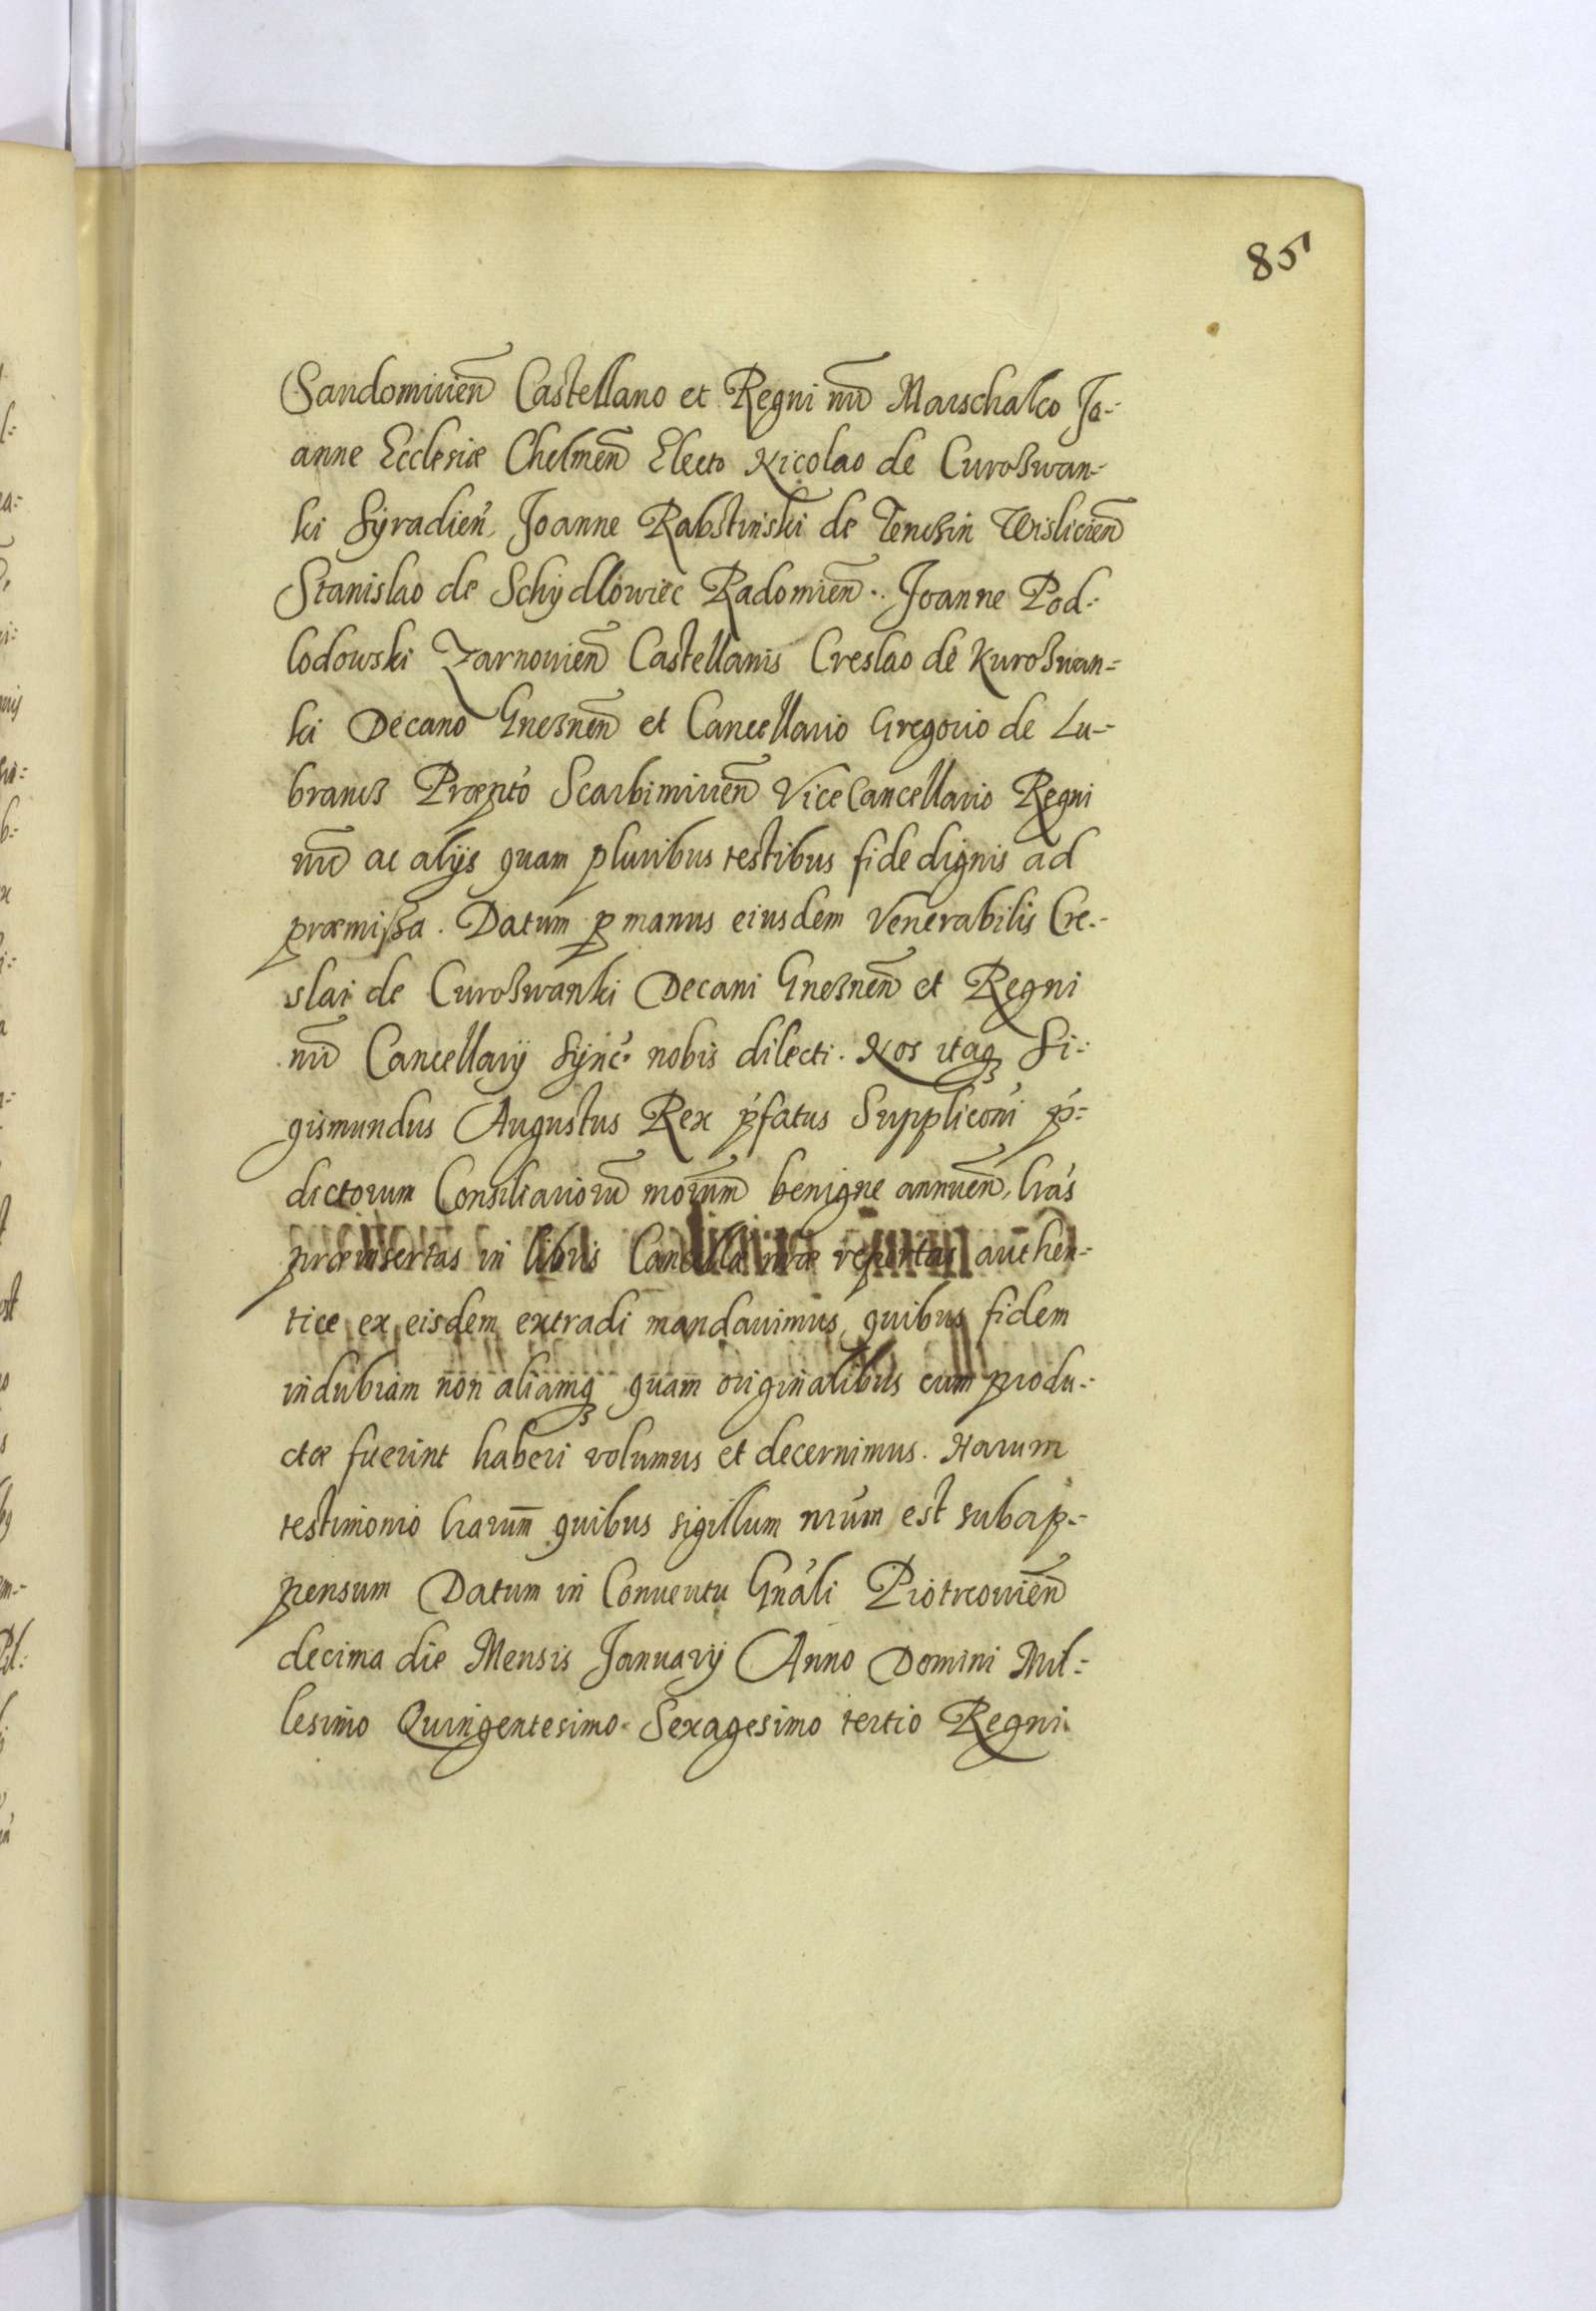 85
Sandomirieñ Castellano et Regni nrī Marschalco Jo-
anne Ecclesiæ Chelmeñ Electo Nicolao de Curoßwan-
ki Syradieñ, Joanne Rabstinski de Tenchin Wislicieñ
Stanislao de Schydlowiec Radomieñ. Joanne Pod-
lodowski Zarnovieñ Castellanis Creslao de Kuroßwan-
ki Decano Gneßneñ et Cancellario Gregorio de Lu-
brancz Præpto Scarbimirieñ ViceCancellario Regni
nrī ac alijs quam pluribus testibus fide dignis ad
præmißa. Datum p manus eiusdem Venerabilis Cre-
slai de Curoßwanki Decani Gneßneñ et Regni
nrī Cancellarij Sync. nobis dilecti. Nos itaq Si-
gismundus Augustus Rex pfatus Suppliconi p-
dictorum Consiliariorū nrorum benigne annueñ, lras
præinsertas in libris Cancellæ nræ repertas authen-
tice ex eisdem extradi mandavimus, quibus fidem
indubiam non aliamq quam originalibus cum produ-
ctæ fuerint haberi volumus et decernimus. Harum
testimonio lrarum quibus sigillum nrum est subap-
pensum Datum in Conventu Gnali Piotrcovieñ
decima die Mensis Januarij Anno Domini Mil-
lesimo Quingentesimo Sexagesimo tertio Regni